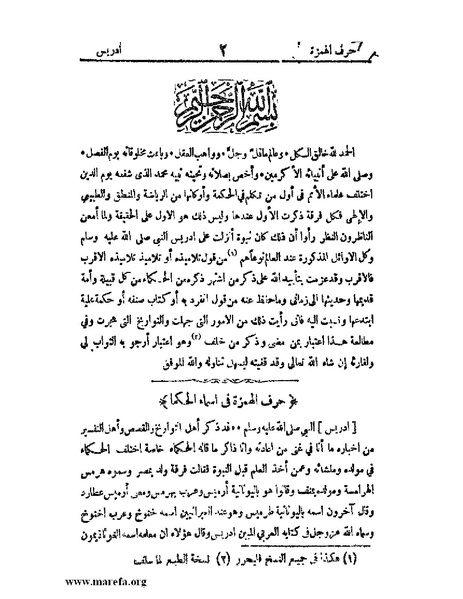 حرف الهمزة ٢ أدريس
بسم الله الرحمن الرحيم
الحمد لله خالق الكل • وعالم ماقل وجل • وواهب العقل • وباعث مخلوقاته يوم الفصل •
وصلى الله على أنبيائه الأكرمين • وأخص بصلاته وتحيته نبيه محمد الذى شفعه يوم الدين
اختلف علماء الأمم فى أول من تكلم فى الحكمة وأركانها من الرياضة والمنطق والطبيعى
والإلهى فكل فرقة ذكرت الأول عندها وليس ذلك هو الاول على الحقيقة ولما أمعن
الناظرون النظر رأوا أن ذلك كان نبوة أنزلت على ادريس النبى صلى الله عليه وسلم
وكل الاوائل المذكورة عند العالم نوعاً هم (١) من قول تلاميذه أو تلاميذ تلاميذه الاقرب
فالاقرب وقد عزمت بتأييد الله على ذكر من اشتهر ذكره من الحكماء من كل قبيلة وأمة
قديمها وحديثها الى زمانى وما حفظ عنه من قول انفرد به أو كتاب صنفه أو حكمة علية
ابتدعها ونسبت اليه فانى رأيت ذلك من الامور التى جهلت والتواريخ التى هجرت وفى
مطالعة هذا اعتبار بمن مضى وذكر من خلف (٢) وهو اعتبار أرجو به الثواب لى
ولقارئه إن شاء الله تعالى وقد قفيته ليسهل تناوله والله الموفق
﴿ حرف الهمزة فى اسماء الحكما ﴾
[ ادريس ] النبى صلى الله عليه وسلم •• قد ذكر أهل التواريخ والقصص وأهل التفسير
من اخباره ما أنا فى غنى من اعادته وانا ذاكر ما قاله الحكماء خاصة اختلف الحكماء
فى مولده ومنشائه وعمن أخذ العلم قبل النبوة فقالت فرقة ولد بمصر وسموه هرمس
الهرامسة ومولده بمنف وقالوا هو باليونانية أرميس وعرب بهرمس ومعنى أرميس عطارد
وقال آخرون اسمه باليونانية طرميس وهو عند العبرانيين اسمه خنوخ وعرب اخنوخ
وسماه الله عز وجل فى كتابه العربى المبين ادريس وقال هؤلاء ان معلمه اسمه الغوثاذيمون
(١) هكذا فى جميع النسخ فليحرر (٢) نسخة الطبع لما سلف
www.marefa.org